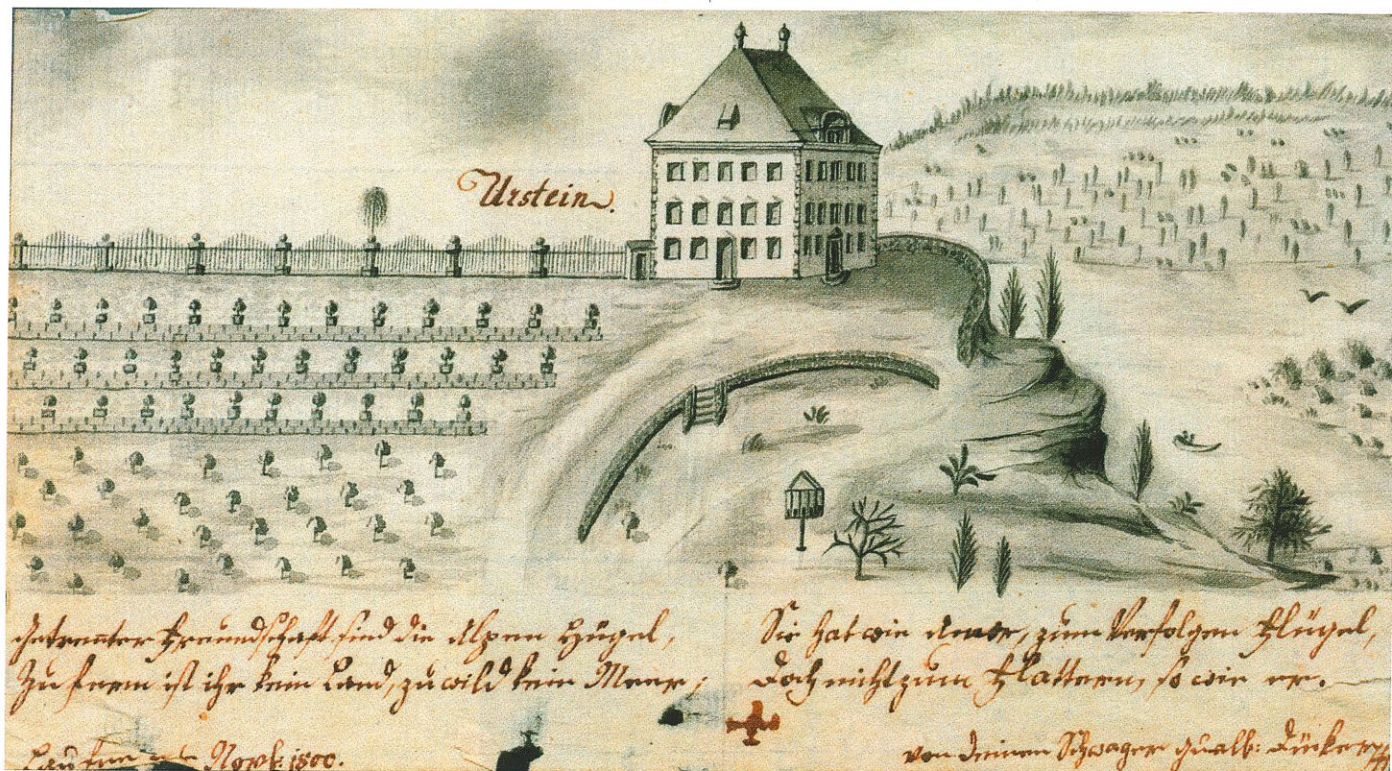 Urstein.
Getrennter Freundschaft sind die Alpen Hügel,
Zu fern ist ihr kein Land, zu wild kein Meer;
Sie hat wie Amor, zum Verfolgen Flügel,
Doch nicht zum Flattern, so wie er.
Laufen Novb: 1800.
von deinem Schwager Gualb: Dücker